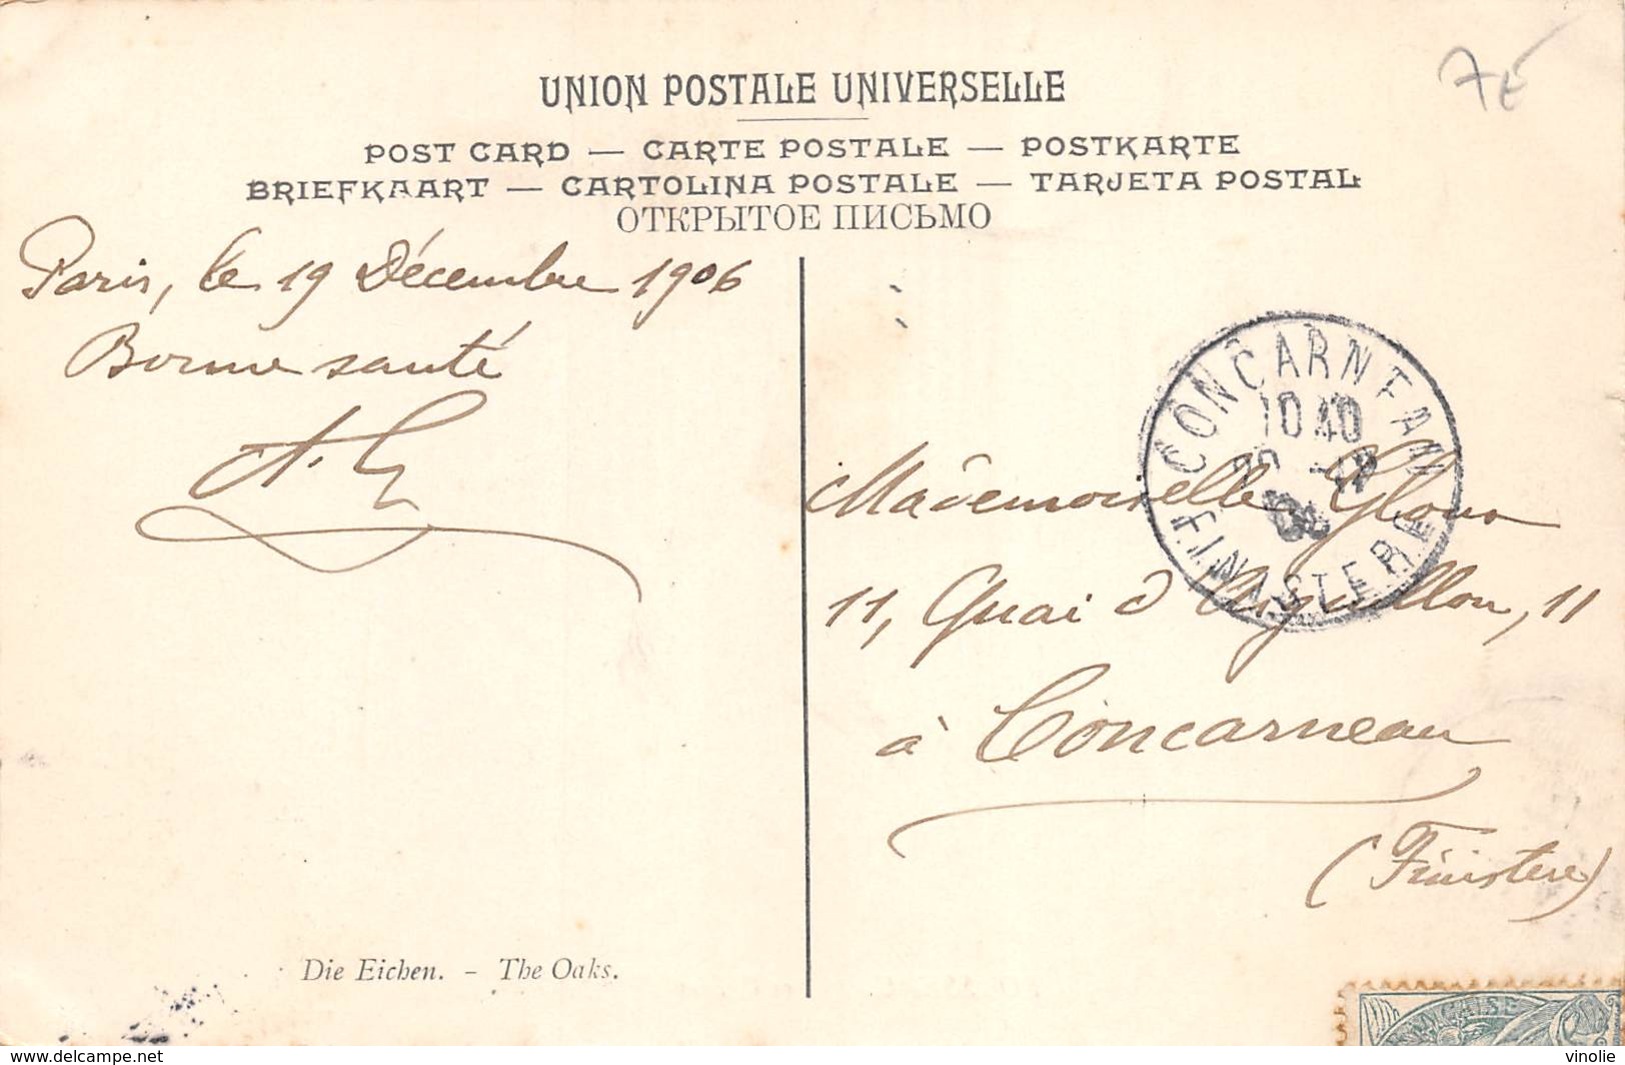 7€
UNION POSTALE UNIVERSELLE
POST CARD — CARTE POSTALE — POSTKARTE
BRIEFKAART — CARTOLINA POSTALE — TARJETA POSTAL
ОТКРЫТОЕ ПИСЬМО
Paris, le 19 Décembre 1906
Bonne santé
CONCARNEAU
10 40
FINISTERE
Mademoiselle
11, Quai d'Aiguillon, 11
à Concarneau
(Finistère)
Die Eichen. - The Oaks.
www.delcampe.net
vinolie